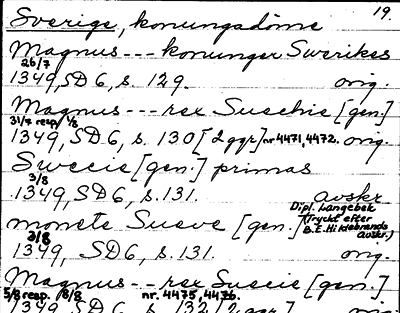 19.
Sverige, konungadöme
Magnus --- konunger Swerikes
26/7
1349, SD 6, s. 129. orig.
Magnus --- rex Suechie [gen.]
31/7 resp. 1/8
1349, SD 6, s. 130 [2 ggr] nr 4471, 4472. orig.
Swecie [gen.] primas
3/8
1349, SD 6, s. 131. avskr
Dipl. Langebek
(Tryckt efter
monete Sueve [gen.] B.E. Hildebrands
avskr.)
3/8
1349, SD 6, s. 131. orig.
Magnus --- rex Suecie [gen.]
5/8 resp. 8/8 nr. 4475, 4476.
1349, SD 6, s. 132 [2 ggr] orig.